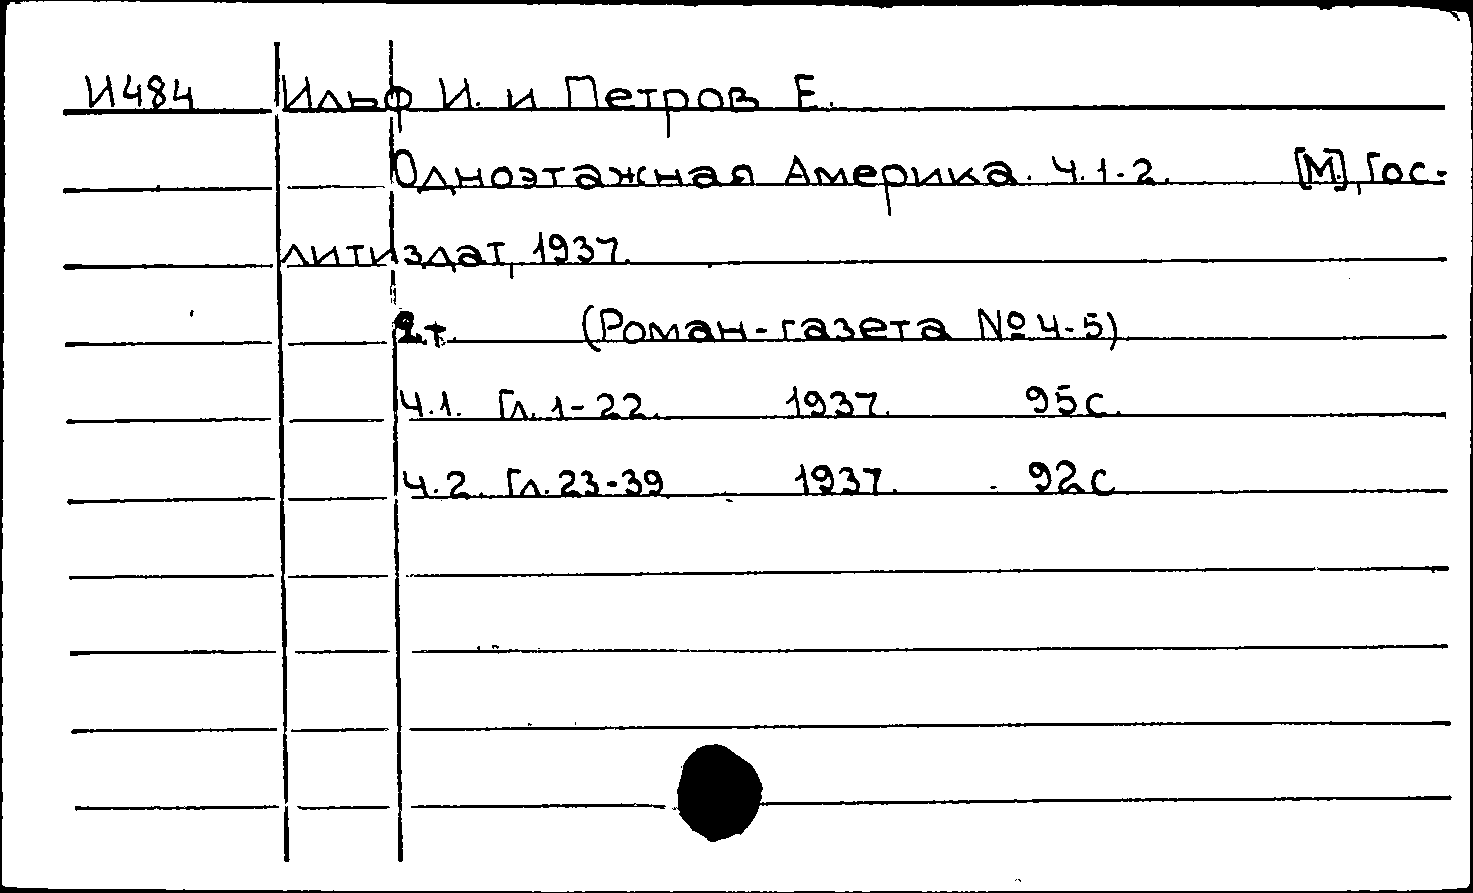 И484 Ильф И. и Петров Е.
Одноэтажная Америка. Ч.1-2. [М.], Гос-
литиздат, 1937.
2 т. (Роман-газета № 4-5)
Ч.1. Гл. 1-22. 1937. 95 с.
Ч.2. Гл. 23-39 1937. 92 с